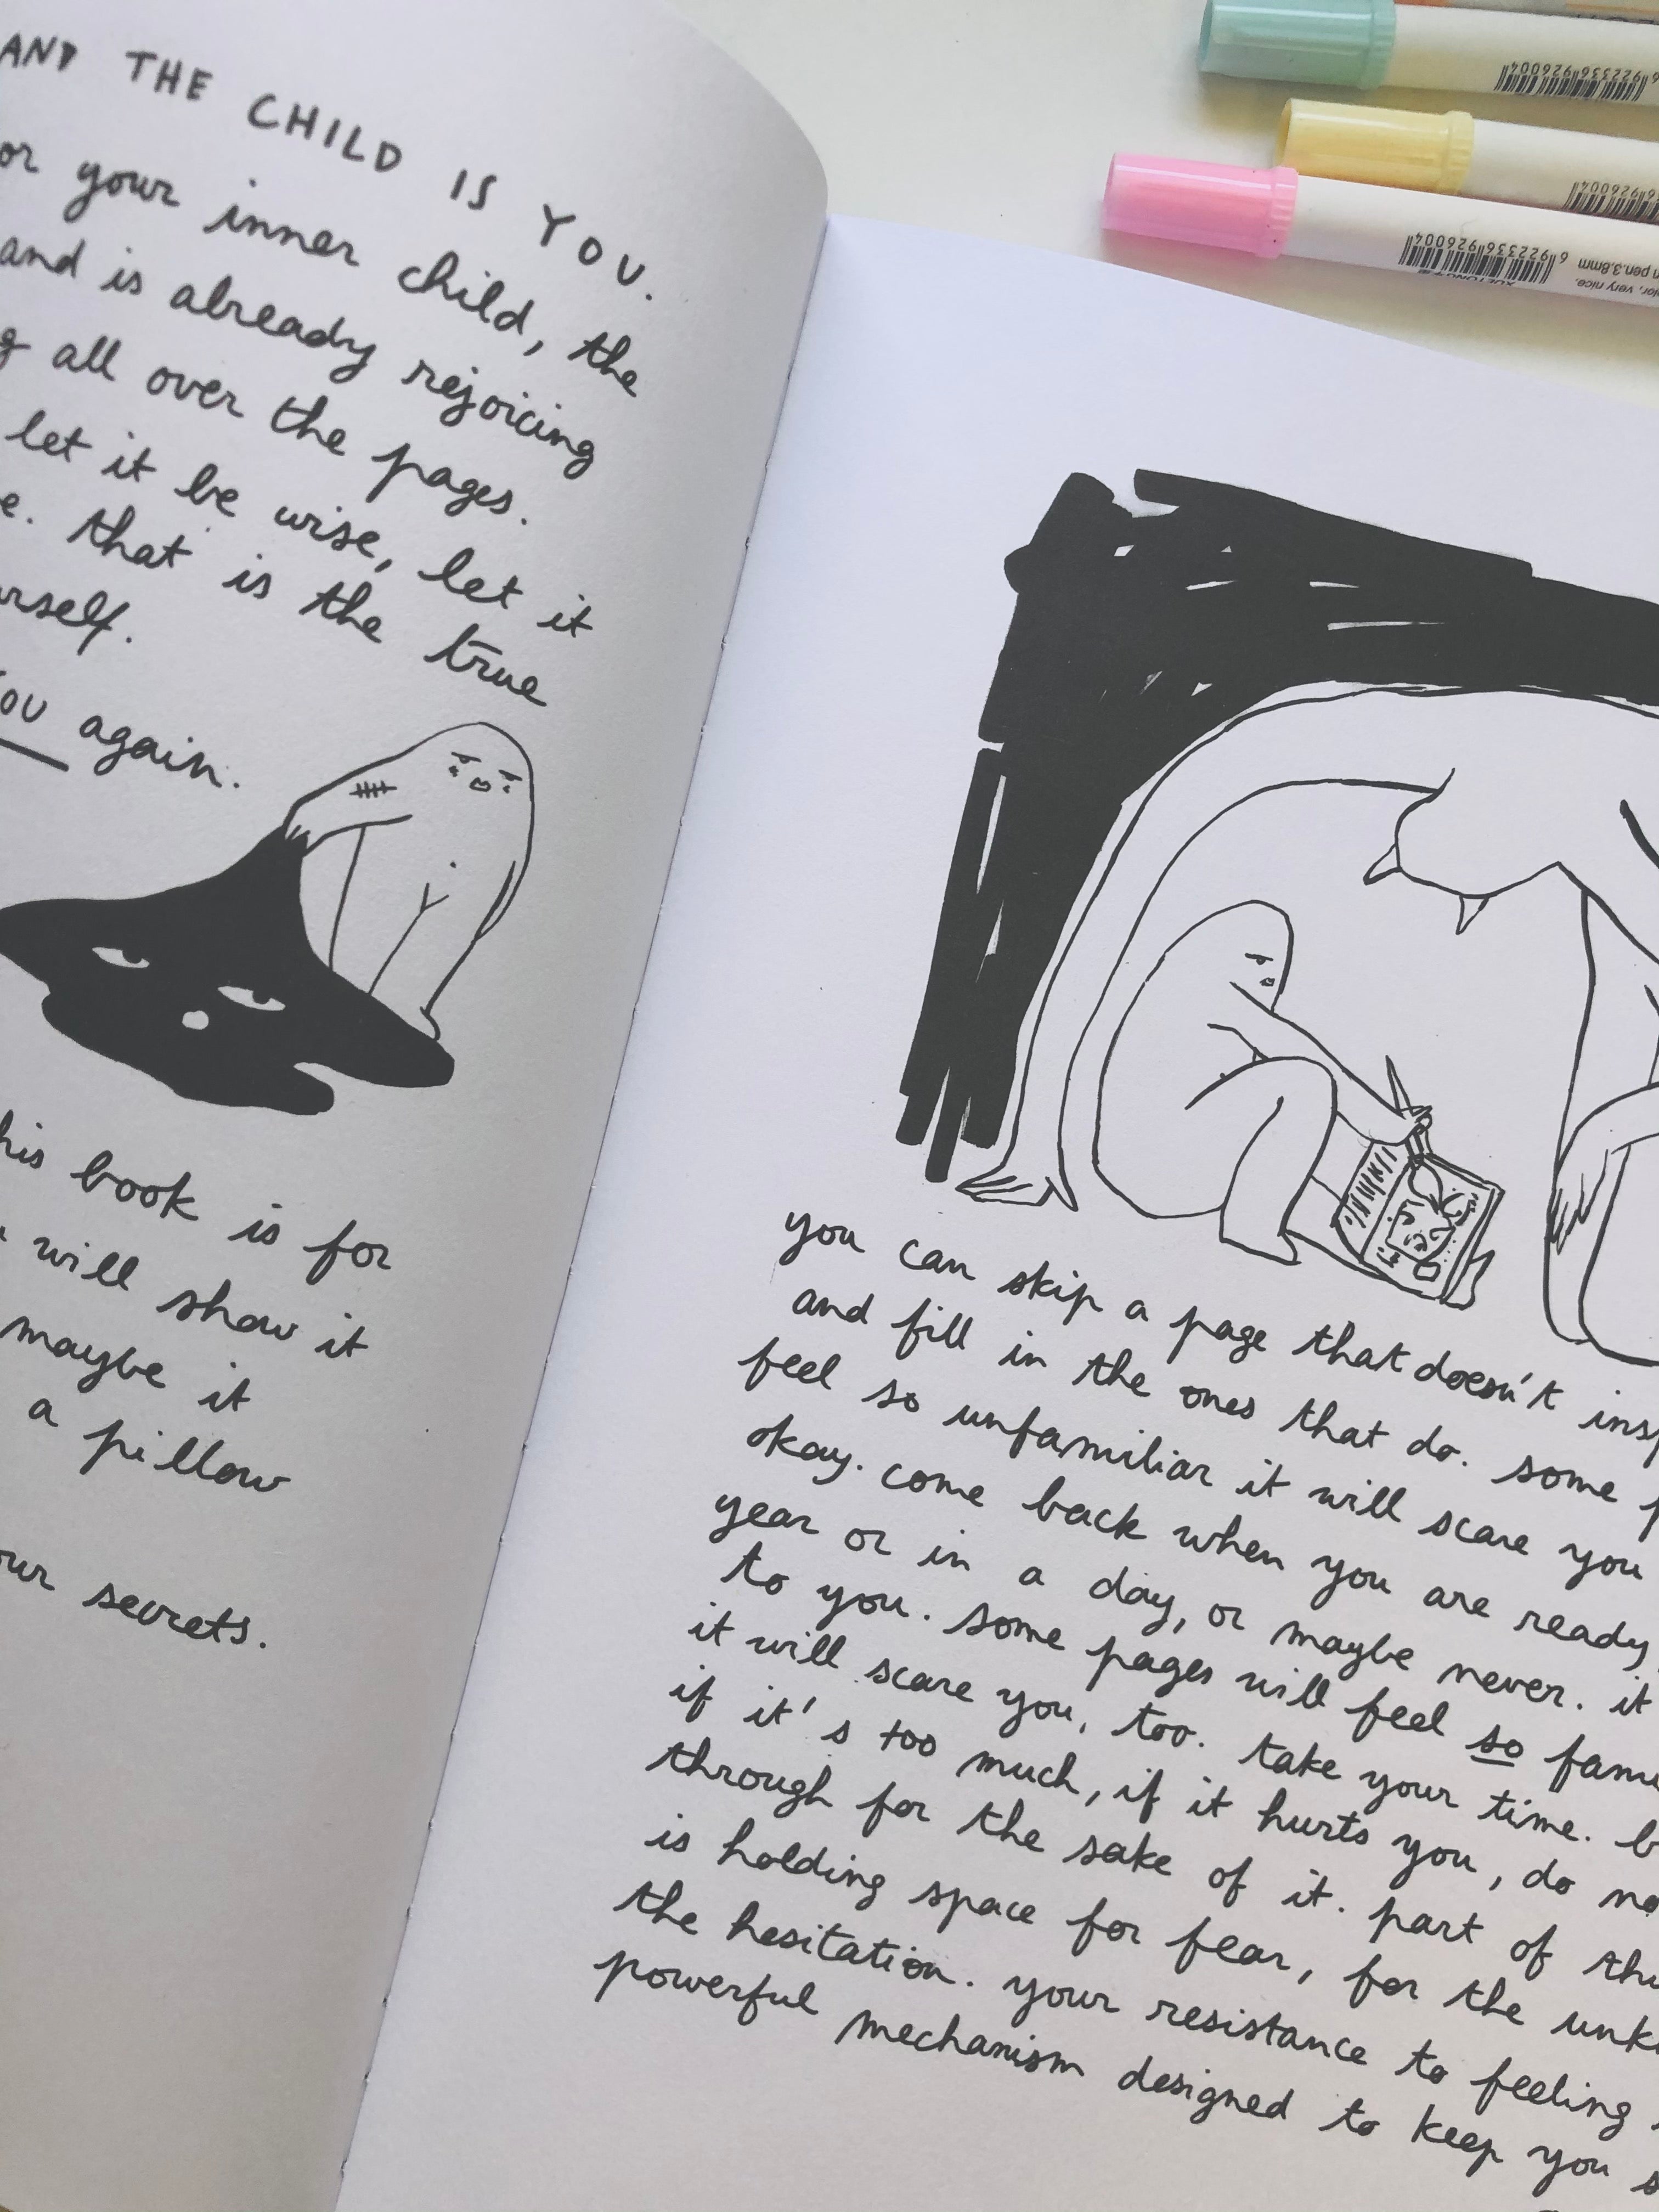 AND THE CHILD IS YOU.
or your inner child, the
and is already rejoicing
g all over the pages.
let it be wise, let it
e. that is the true
urself.
YOU again.
his book is for
will show it
maybe it
a pillow
our secrets.
you can skip a page that doesn't insp
and fill in the ones that do. some p
feel so unfamiliar it will scare you
okay. come back when you are ready,
year or in a day, or maybe never. it
to you. some pages will feel so fami
it will scare you, too. take your time. b
if it's too much, if it hurts you, do no
through for the sake of it. part of thi
is holding space for fear, for the unk
the hesitation. your resistance to feeling
powerful mechanism designed to keep you s
6 922336 926004
6 922336 926004
6 922336 926004
n pen.3.8mm
lor, very nice.